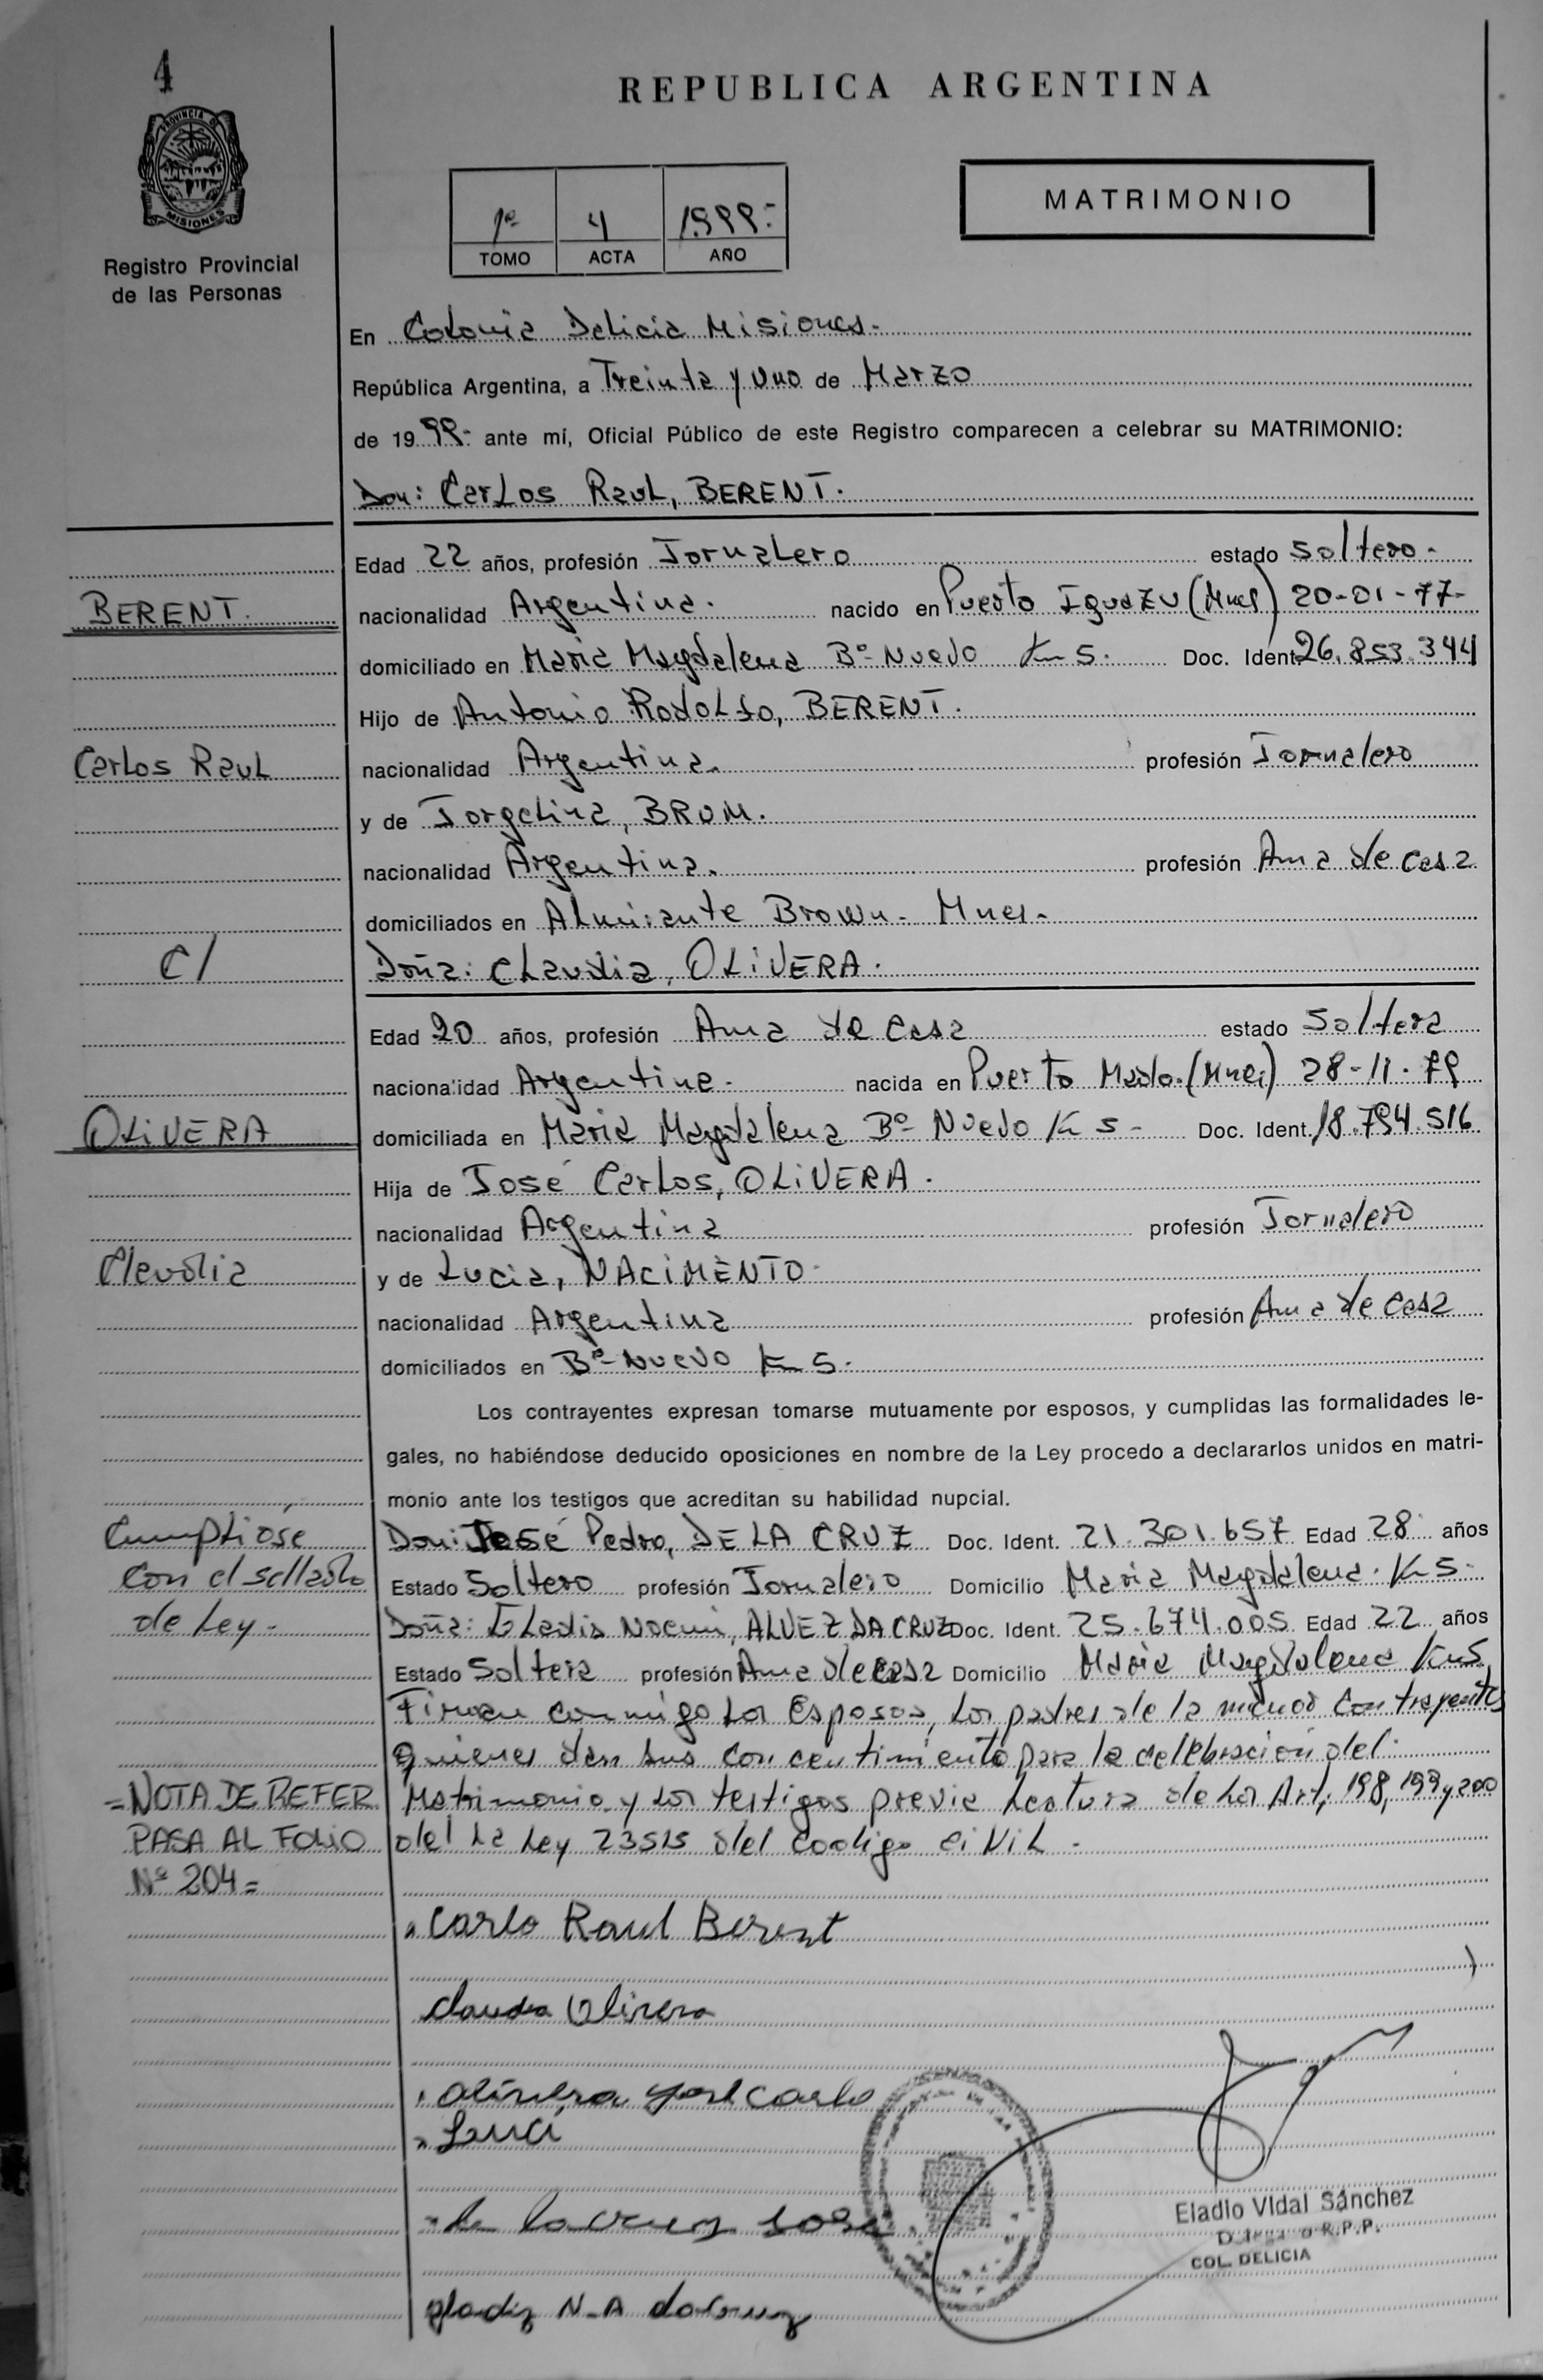 4
REPUBLICA ARGENTINA
PROVINCIA DE
MISIONES
Registro Provincial
de las Personas
1º 4 1999.-
TOMO ACTA AÑO
MATRIMONIO
En Colonia Delicia Misiones.-
República Argentina, a Treinta y uno de Marzo
de 1999.- ante mí, Oficial Público de este Registro comparecen a celebrar su MATRIMONIO:
Don: Carlos Raul, BERENT.
Edad 22 años, profesión Jornalero estado Soltero.-
BERENT.
nacionalidad Argentina. nacido en Puerto Iguazu (Mnes) 20-01-77-
domiciliado en Maria Magdalena Bº Nuevo Km 5. Doc. Ident. 26.853.344
Hijo de Antonio Rodolfo, BERENT.
Carlos Raul
nacionalidad Argentina. profesión Jornalero
y de Jorgelina, BRUM.
nacionalidad Argentina. profesión Ama de casa
domiciliados en Almirante Brown - Mnes.-
C/
Doña: Claudia, OLIVERA.
Edad 20 años, profesión Ama de casa estado Soltera
nacionalidad Argentina.- nacida en Puerto Mado. (Mnes) 28-11-79
OLIVERA
domiciliada en Maria Magdalena Bº Nuevo Km 5.- Doc. Ident. 18.794.516
Hija de José Carlos, OLIVERA.
nacionalidad Argentina profesión Jornalero
Claudia
y de Lucia, NACIMENTO.
nacionalidad Argentina profesión Ama de casa
domiciliados en Bº Nuevo Km 5.
Los contrayentes expresan tomarse mutuamente por esposos, y cumplidas las formalidades le-
gales, no habiéndose deducido oposiciones en nombre de la Ley procedo a declararlos unidos en matri-
monio ante los testigos que acreditan su habilidad nupcial.
Cumplióse
con el sellado
de Ley.-
Don: José Pedro, DE LA CRUZ Doc. Ident. 21.301.657 Edad 28 años
Estado Soltero profesión Jornalero Domicilio Maria Magdalena. Km 5-
Doña: Gladis Noemi, ALVEZ DA CRUZ Doc. Ident. 25.674.005 Edad 22 años
Estado Soltera profesión Ama de casa Domicilio Maria Magdalena Km 5
Firman conmigo los Esposos, los padres de la menor contrayente
quienes dan sus concentimiento para la celebracion del
Matrimonio y los testigos previe Lectura de los Art, 198, 199 y 200
del la Ley 23515 del Codigo CiViL.-
=NOTA DE REFER
PASA AL FOLIO
Nº 204=
Carlo Raul Berent
Claudia Olivera
Olivera José Carlo
Luci
de la cruz José
gladiz N-A dacruz
Eladio Vidal Sánchez
R.P.P.
COL. DELICIA